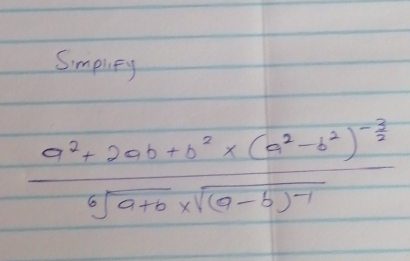 Simplify
a² + 2ab + b² × (a² − b²)^(-3/2)
⁶√(a+b) × √((a−b)^(-1))